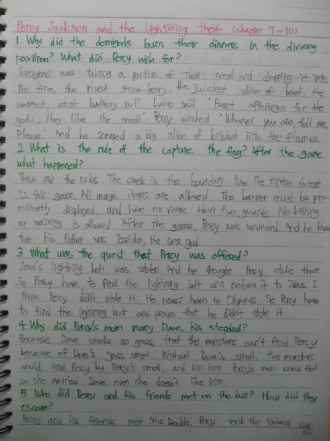 Percy Jackson and the Lightning theif (chapter 7~10)
1. Why did the demigods burn their dinners in the dinning
pavilion? What did Percy wish for?
Everyone was taking a portion of their meal and dropping it into
the fire, the ripest strawberry, the juiciest slice of beef, the
warmest, most buttery roll. Luke said "Burnt offerings for the
gods, they like the smell" Percy wished "Whoever you are, tell me,
Please" And he scraped a big slice of brisket into the flames.
2. What is the rule of the capture the flag? After the game
what happened?
These are the rules. The creek is the boundary line. The entire forest
is fair game. All magic items are allowed. The banner must be pro-
minently displayed, and have no more than two guards. No killing
or maiming is allowed. After the game, Percy was wounded. And he knew
that his father was Poseidon, the sea god.
3. What was the quest that Percy was offered?
Zeus's lightning bolt was stolen. And he thought Percy stole that.
So Percy have to find the lightning bolt and return it to Zeus. I
think Percy didn't stole it. He never been to Olympus. So Percy have
to find the lightning bolt and prove that he didn't stole it.
4. Why did Percy's mom marry Dave, his stepdad?
Because Dave smells so gross, that the monsters can't find Percy
because of Dave's gross smell. Without Dave's smell, the monsters
would find Percy by Percy's smell, and kill him. Percy's mom knew that
so she married Dave even she doesn't like him.
5. Who did Percy and his friends met on the bus? How did they
escape?
Percy and his friends met Mrs. Dodds. Percy took the Yankees cap